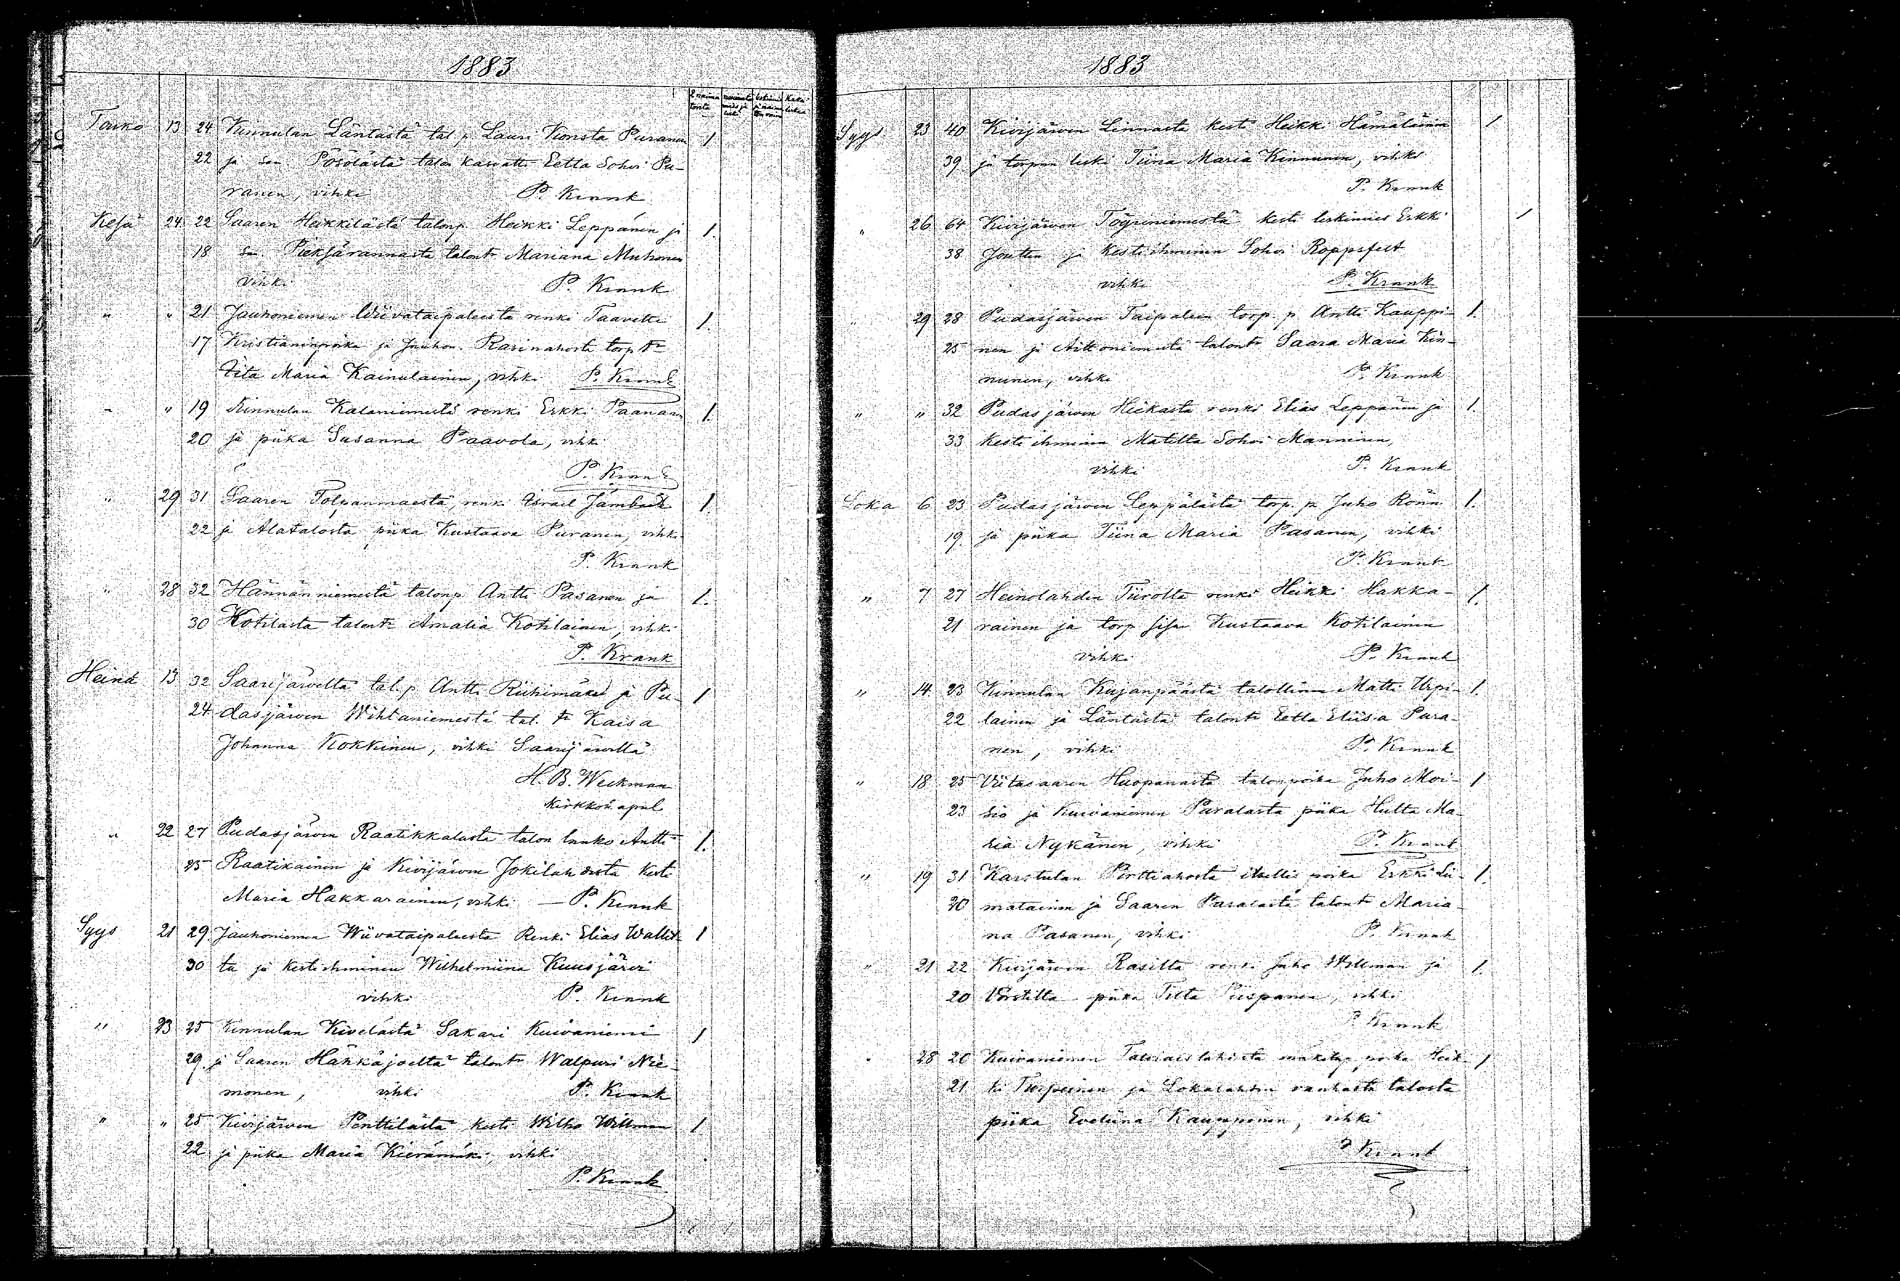 1883
Touko 13 24 Kinnulan Läntästä tal. p. Lauri Konsta Puranen 1.
22 ja sm Pösölästä talon kasvatti Eetla Sohvi Pu-
ranen, vihki P. Krank
Kesä 24 22 Saaren Heikkilästä talonp. Heikki Leppänen ja 1.
18 sm. Piekjärannasta talont. Mariana Muhonen
vihki P. Krank
" " 21 Jauhoniemen Wiivataipaleesta renki Taavetti 1.
17 Kristianinpoika ja Jauhon. Rasinahosta torp. tr
Tiita Maria Kainulainen, vihki P. Krank
" " 19 Kinnulan Kalaniemestä renki Erkki Paananen 1.
20 ja piika Susanna Paavola, vihki
P. Krank
" 29 31 Saaren Tolpanmaesta, renki Israel Jämbäck 1.
22 ja Alatalosta piika Kustaava Puranen, vihki
P. Krank
" 28 32 Hännänniemestä talonp. Antti Pasanen ja 1.
30 Kotilasta talontr Amalia Kotilainen, vihki
P. Krank
Heinä 13 32 Saarijärveltä tal. p. Antti Riihimäki ja Pu- 1
24 dasjärven Wihtaniemestä tal. tr Kaisa
Johanna Kokkinen, vihki Saarijärvellä
H. B. Weckman
kirkkoh. apul.
" 22 27 Pudasjärven Raatikkalasta talon lanko Antti 1.
25 Raatikainen ja Kivijärven Jokilahdesta kesti
Maria Hakkarainen, vihki — P. Krank
Syys 21 29. Jauhoniemen Wiivataipaleesta Renki Elias Wallit- 1
30 ta ja kestiihminen Wilhelmiina Kuusjärvi
vihki P. Krank
" 23 25 Kinnulan Kivelästä Sakari Kuivaniemi 1
29. ja Saaren Häkkäjoelta talont. Walpuri Nie-
monen, vihki P. Krank
" " 25 Kivijärven Penttilästä kesti Wilho Willman 1
22 ja piika Maria Kierämäki, vihki
P. Krank
1883
Syys 23 40 Kivijärven Linnasta kesti Heikki Hämäläinen 1
39 ja torpan leski Tiina Maria Kinnunen, vihki
P. Krank
" 26 64 Kivijärven Töyriniemestä kesti leskimies Erkki 1
38 Joutten ja kestiihminen Sohvi Roppsfelt
vihki P. Krank
" 29 28 Pudasjärven Taipaleen torp. p. Antti Kauppi- 1.
25 nen ja Aittoniemestä talontr Saara Maria Kin-
nunen, vihki P. Krank
" " 32 Pudasjärven Heikasta renki Elias Leppänen ja 1.
33 kestiihminen Matelta Sohvi Manninen,
vihki P. Krank
Loka 6 23 Pudasjärven Leppälästä torp. p. Juho Rönn 1.
19. ja piika Tiina Maria Pasanen, vihki
P. Krank
" 7 27 Heinolahden Tiirolta renki Heikki Hakka- 1.
21 rainen ja torp. Kustaava Kotilainen
vihki P. Krank
" 14. 23 Kinnulan Kujanpäästä talollinen Matti Urpi- 1.
22 lainen ja Läntästä talontr Eetla Eliisa Pura-
nen, vihki P. Krank
" 18 25 Viitasaaren Huopanasta talonpoika Juho Moi- 1
23 sio ja Kuivaniemen Puralasta piika Hulta Ma-
ria Nykänen, vihki P. Krank
" 19 31 Karstulan Porttiahosta itsellis poika Erkki Lii- 1.
20 matainen ja Saaren Puralasta talontr Maria-
na Pasanen, vihki P. Krank
" 21 22 Kivijärven Rasilta renki Juho Willman ja 1.
20 piika Tilta Piispanen, vihki
P. Krank
" 28 20 Kuivaniemen poika Heik- 1
21 ki Turpeinen ja Lokalahden vanhasta talosta
piika Eveliina Kauppinen, vihki
P. Krank